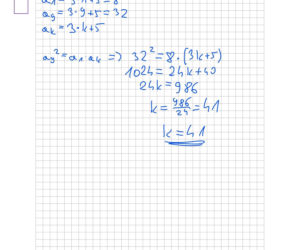 a₉ = 3·9+5 = 32
aₖ = 3·k+5
a₉² = a₁ aₖ => 32² = 8·(3k+5)
1024 = 24k+40
24k = 986
k = 986/24 = 41
k = 41